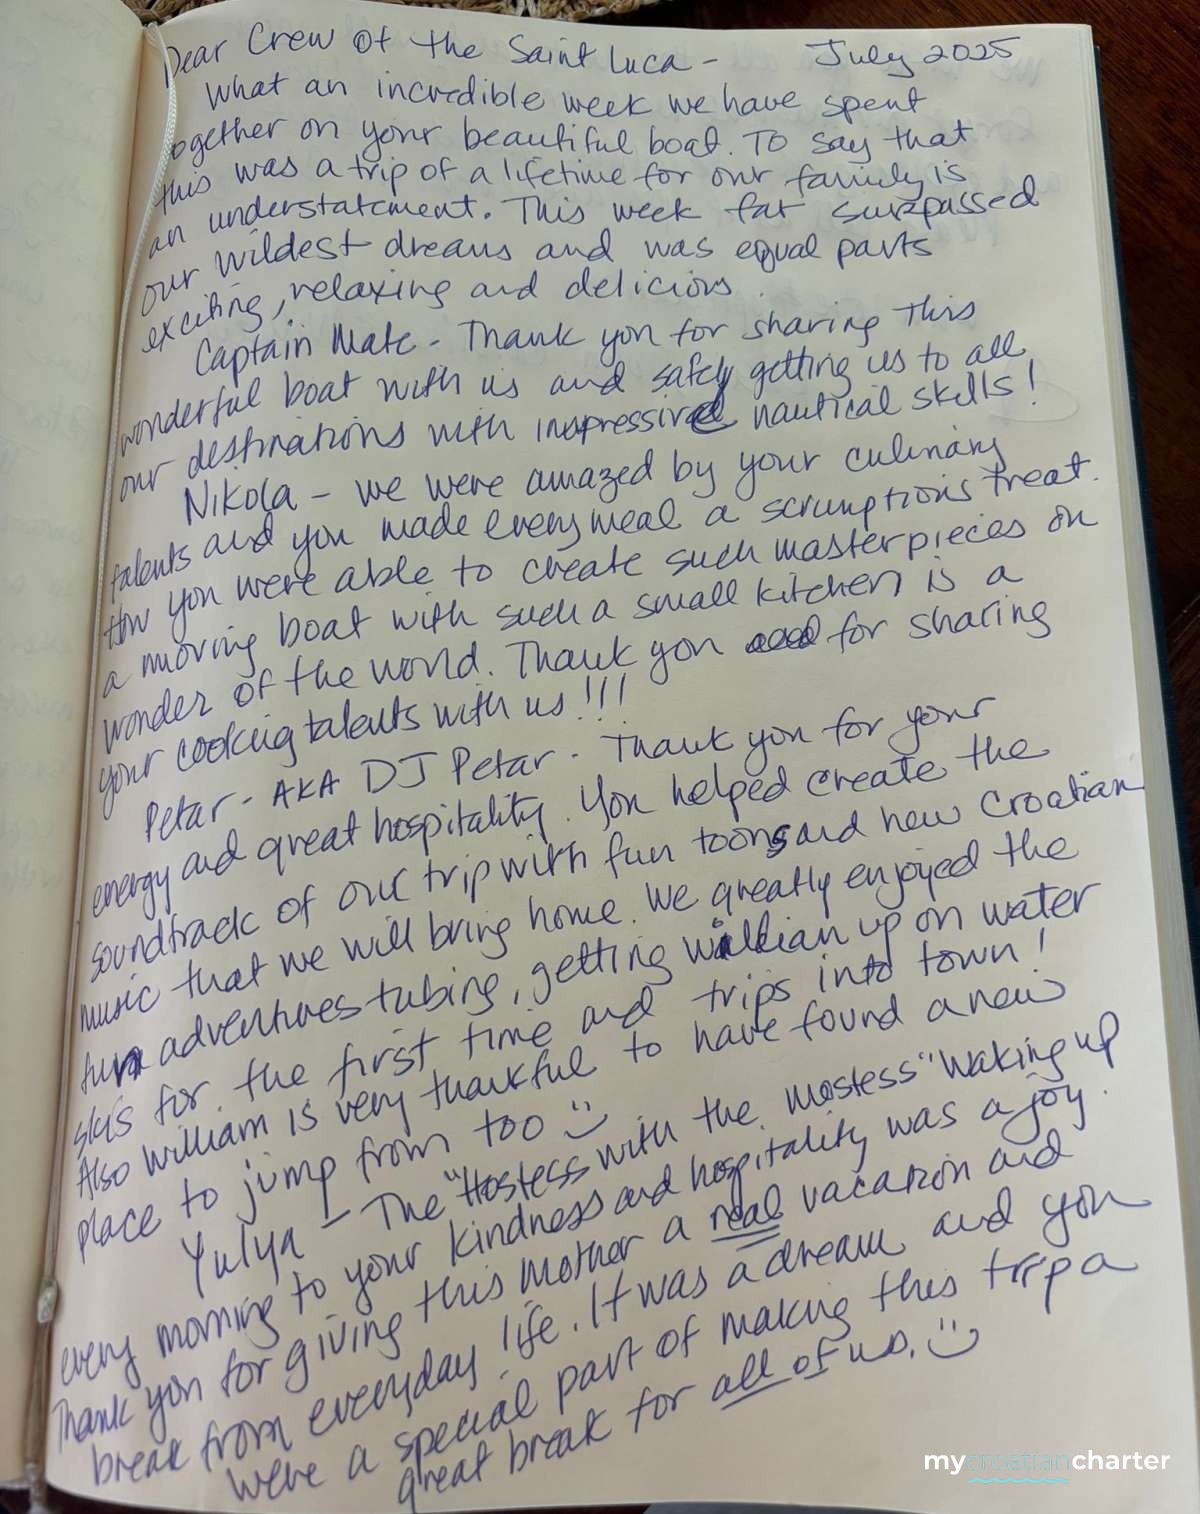 Dear Crew of the Saint Luca - July 2025
What an incredible week we have spent
together on your beautiful boat. To say that
this was a trip of a lifetime for our family is
an understatement. This week far surpassed
our wildest dreams and was equal parts
exciting, relaxing and delicious.
Captain Mate - Thank you for sharing this
wonderful boat with us and safely getting us to all
our destinations with impressive nautical skills!
Nikola - we were amazed by your culinary
talents and you made every meal a scrumptious treat.
How you were able to create such masterpieces on
a moving boat with such a small kitchen is a
wonder of the world. Thank you for sharing
your cooking talents with us!!!
Petar - AKA DJ Petar - Thank you for your
energy and great hospitality. You helped create the
soundtrack of our trip with fun toons and new Croatian
music that we will bring home. We greatly enjoyed the
fun adventures tubing, getting William up on water
skis for the first time and trips into town!
Also William is very thankful to have found a new
place to jump from too :)
Yulya - The "Hostess with the mostess" Waking up
every morning to your kindness and hospitality was a joy.
Thank you for giving this mother a real vacation and
break from everyday life. It was a dream and you
were a special part of making this trip a
great break for all of us. :)
mycroatiancharter